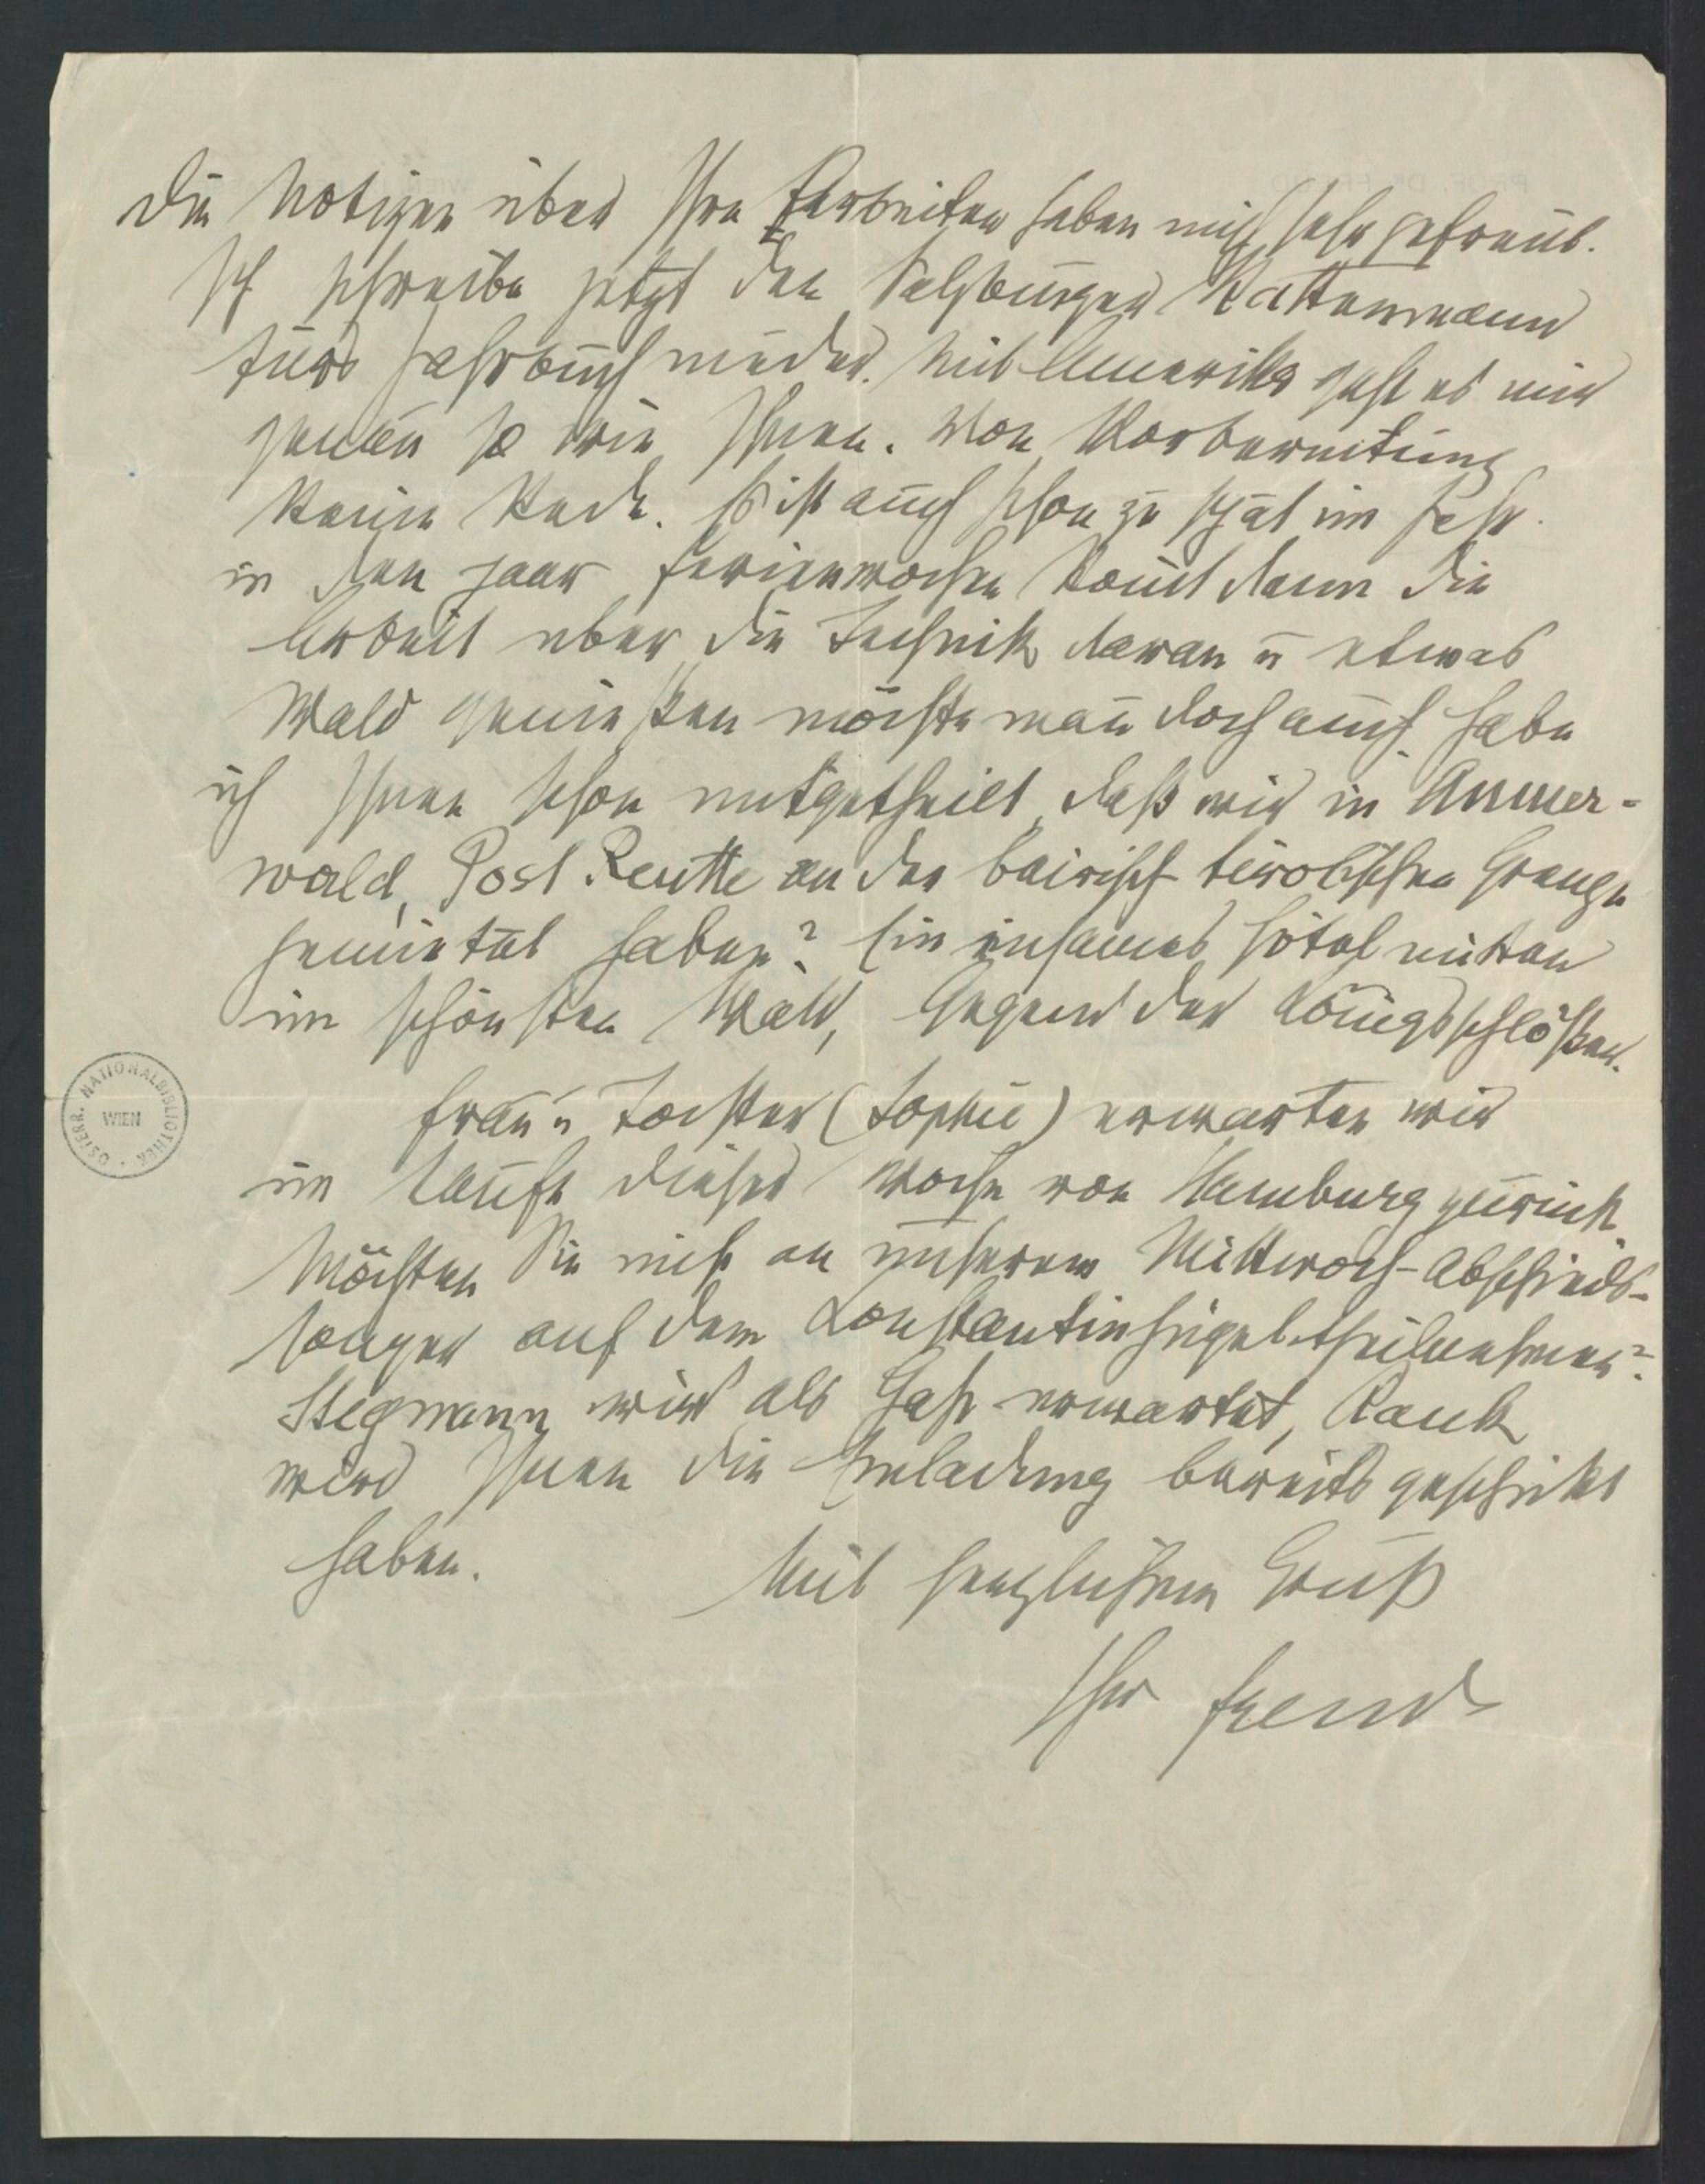 Die Notizen über Ihre Arbeiten haben mich sehr gefreut.
Ich schreibe jetzt den Salzburger Rattenmann
fürs Jahrbuch nieder. Mit Amerika geht es mir
genau so wie Ihnen. Von Vorbereitung
keine Rede. Es ist auch schon zu spät im Jahr.
in den paar Ferienwochen kom̄t dann die
Arbeit über die Technik daran u etwas
Wald genießen möchte man doch auch. Habe
ich Ihnen schon mitgetheilt, daß wir in Ammer-
wald, Post Reutte an der bairisch-tirolischen Grenze
gemietet haben? Ein einsames Hôtel mitten
im schönsten Wald, Gegend der Königsschlößer.
Frau u Tochter (Sophie) erwarten wir
im Laufe dieser Woche von Hamburg zurück.
Möchten Sie nicht an unserem Mittwoch-Abschieds-
souper auf dem Constantinhügel theilnehmen?
Stegmann wird als Gast erwartet, Rank
wird Ihnen die Einladung bereits geschickt
haben.
Mit herzlichem Gruß
Ihr Freud
ÖSTERR. NATIONALBIBLIOTHEK · WIEN